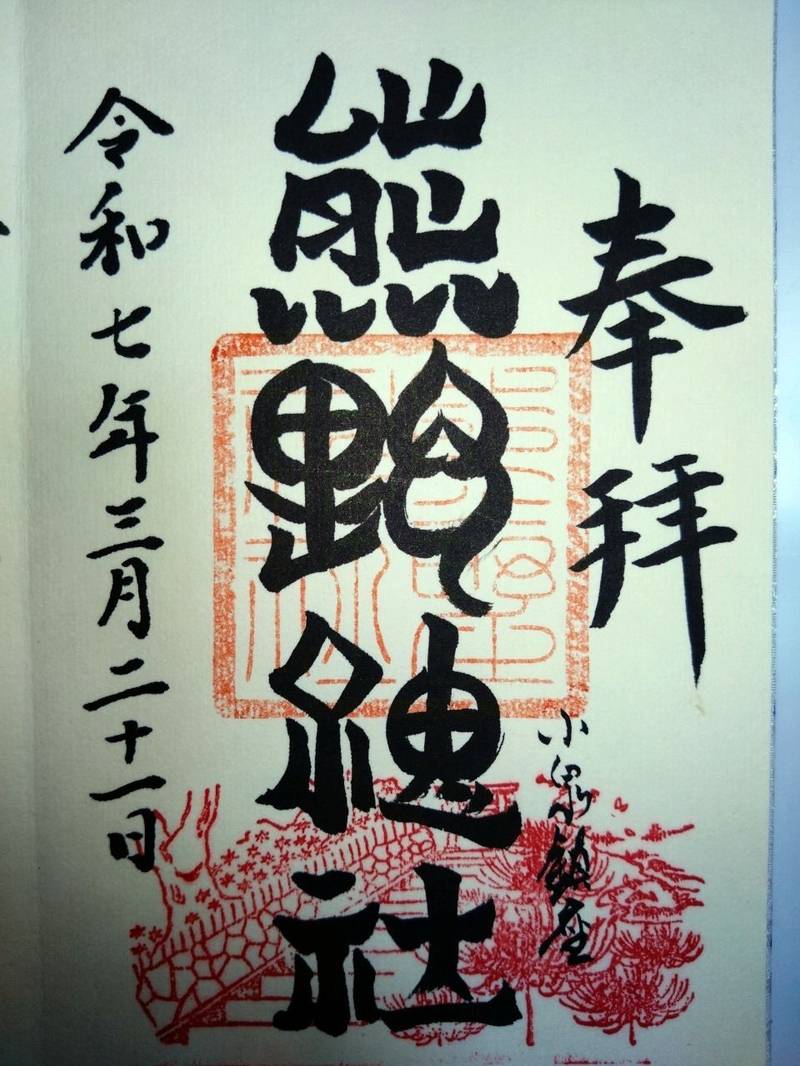 奉拝
小泉鎮座
熊野總社
令和七年三月二十一日